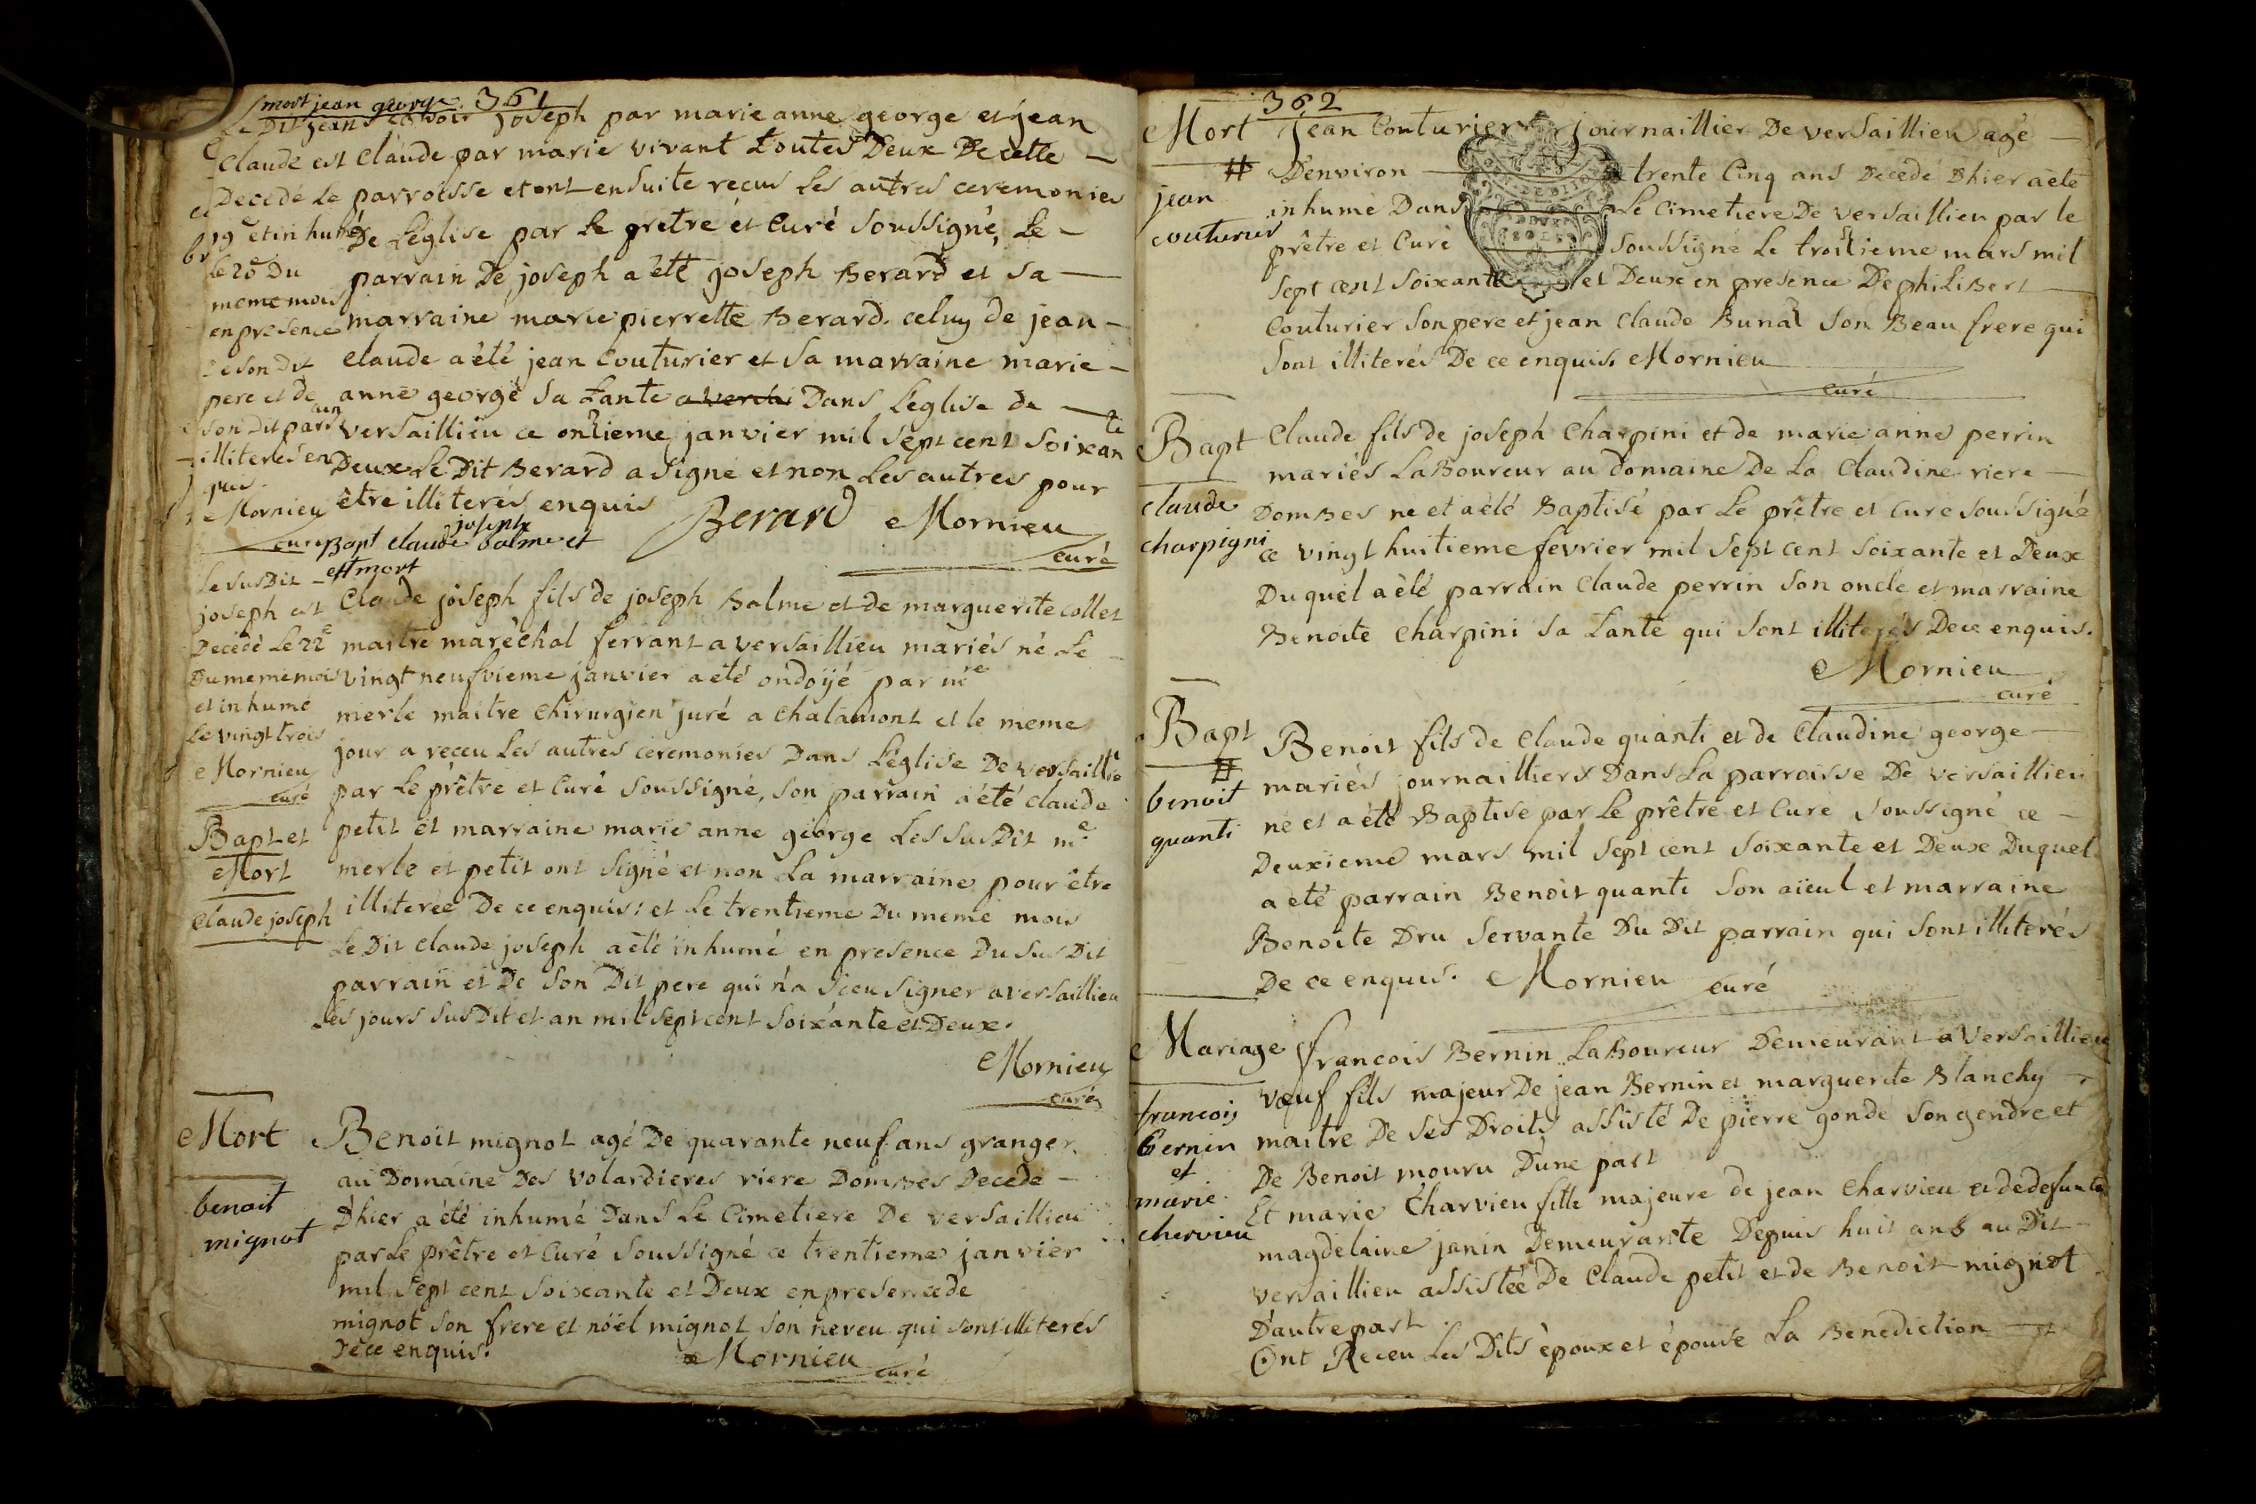 mort jean george. 361
Le Dit jean scavoir joseph par marie anne george et jean
Claude est Claude par marie vivant toutes Deux De cette
parroisse et ont ensuite recus Les autres ceremonies
De L'église par Le pretre et Curé Soussigné, Le
parrain De joseph a été joseph Berard et Sa
marraine marie pierrette Berard. celuy de jean
claude a été jean Couturier et Sa marraine marie
anne george Sa tante Dans L'eglise de
versaillieu ce onzieme janvier mil Sept cent Soixante
Deux Le Dit Berard a Signé et non Les autres pour
être illiteres enquis Berard Mornieu
curé
Decedé Le
19e et inhumé
Le 20e Du
meme mois
en presence
De Son Dit
pere et de
Son Dit parrain
illiterés en
quis.
Mornieu
curé
Le SusDit
joseph est
Decedé Le 22e
Du meme mois
et inhumé
Le vingt trois
Mornieu
curé
Bapt et
Mort
Claude joseph
Bapt claude joseph balme et
est mort
Claude joseph fils de joseph Balme et de marguerite Collet
maitre maréchal ferrant a versaillieu mariés né Le
vingt neufvieme janvier a été ondoÿé par me
merle maitre Chirurgien juré a Chalamont et le meme
jour a receu Les autres ceremonies Dans L'église De versaillieu
par Le prêtre et Curé Soussigné, Son parrain a été claude
petit et marraine marie anne george Les SusDit me
merle et petit ont Signé et non La marraine pour être
illiterée De ce enquis: et Le trentieme Du meme mois
Le Dit Claude joseph a été inhumé en presence Du SusDit
parrain et De Son Dit pere qui n'a Sceu Signer a versaillieu
Les jours SusDit et an mil Sept cent Soixante et Deux.
Mornieu
curé
Mort
benoit
mignot
Benoit mignot agé De quarante neuf ans granger
au Domaine Des volardieres riere Dombes Decedé
D'hier a été inhumé Dans Le Cimetiere De versaillieu
par Le prêtre et Curé Soussigné ce trentieme janvier
mil Sept cent Soixante et Deux en presence de
mignot Son frere et nöel mignot Son neveu qui Sont illiterés
De ce enquis. Mornieu
curé
362
Mort
jean
couturier
jean Couturier journaillier De versaillieu agé
D'environ trente Cinq ans Decedé D'hier a été
inhumé Dans Le Cimetiere De versaillieu par le
prêtre et Curé Soussigné Le troisieme mars mil
Sept cent Soixante et Deux en presence De philiBert
Couturier Son pere et jean Claude Bunal Son Beau frere qui
Sont illiterés De ce enquis. Mornieu
curé
Bapt
claude
charpigni
Claude fils de joseph Charpini et de marie anne perrin
mariés LaBoureur au Domaine De La Claudine riere
DomBes né et a été Baptisé par Le prêtre et Curé Soussigné
ce vingt huitieme fevrier mil Sept cent Soixante et Deux
Duquel a été parrain Claude perrin Son oncle et marraine
Benoite Charpini Sa tante qui Sont illiterés De ce enquis.
Mornieu
curé
Bapt
benoit
quanti
Benoit fils de Claude quanti et de Claudine george
mariés journailliers Dans La parroisse De versaillieu
né et a été Baptisé par Le prêtre et Curé Soussigné ce
Deuxieme mars mil Sept cent Soixante et Deux Duquel
a été parrain Benoit quanti Son aïeul et marraine
Benoite Dru Servante Du Dit parrain qui Sont illiterés
De ce enquis. Mornieu curé
Mariage
francois
bernin
et
marie
chervieu
francois Bernin LaBoureur Demeurant a versaillieu
vœuf fils majeur De jean Bernin et marguerite Blanchy
maitre De Ses Droits assisté De pierre gonde Son gendre et
De Benoit mouru D'une part
Et marie Charvieu fille majeure de jean Charvieu et de defunte
magdelaine janin Demeurante Depuis huit ans au Dit
versaillieu assistée De Claude petit et de Benoit mignot
D'autre part.
Ont Receu Les Dits époux et épouse La Benediction